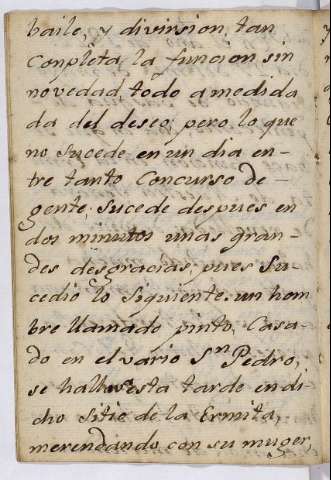 baile, y divirsion, tan
Conpleta la funcion sin
novedad, todo a medida
da del deseo; pero lo que
no sucede en un dia en-
tre tanto Concurso de
gente, sucede despues en
dos minutos unas gran-
des desgracias, pues Su
cedió lo Siguiente. un hom
bre llamado pinto, Casa-
do en el vario Sn Pedro,
se hallava esta tarde en di
cho Sitio de la Ermita,
merendando con su muger,